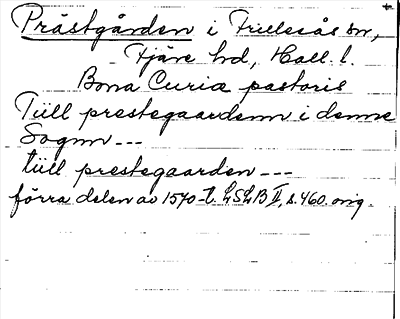 Prästgården i Frillesås sn,
Fjäre hd, Hall. l.
Bona Curiæ pastoris
Tiill prestegaardenn i denne
Sognn ---
tiill prestegaarden ---
förra delen av 1570-t. LSLB II, s. 460. orig.